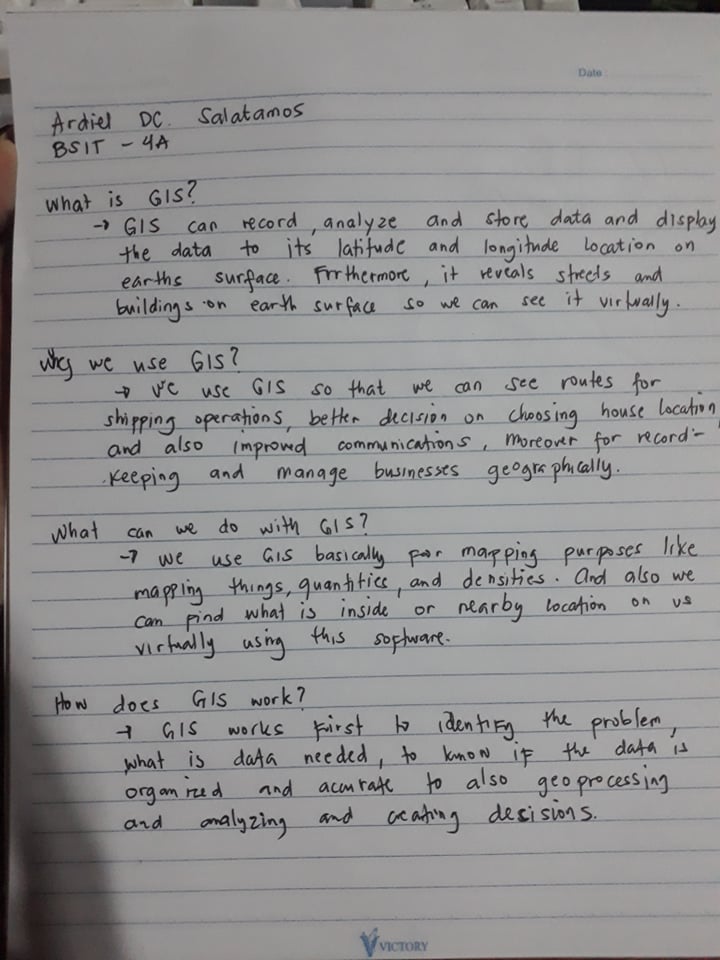 Date
Ardiel DC. Salatamos
BSIT - 4A
What is GIS?
→ GIS can record, analyze and store data and display
the data to its latitude and longitude location on
earths surface. Furthermore, it reveals streets and
buildings on earth surface so we can see it virtually.
Why we use GIS?
→ We use GIS so that we can see routes for
shipping operations, better decision on choosing house location,
and also improved communications, moreover for record-
keeping and manage businesses geographically.
What can we do with GIS?
→ we use GIS basically for mapping purposes like
mapping things, quantities, and densities. And also we
can find what is inside or nearby location on us
virtually using this software.
How does GIS work?
→ GIS works first to identify the problem,
what is data needed, to know if the data is
organized and accurate to also geoprocessing
and analyzing and creating decisions.
VICTORY